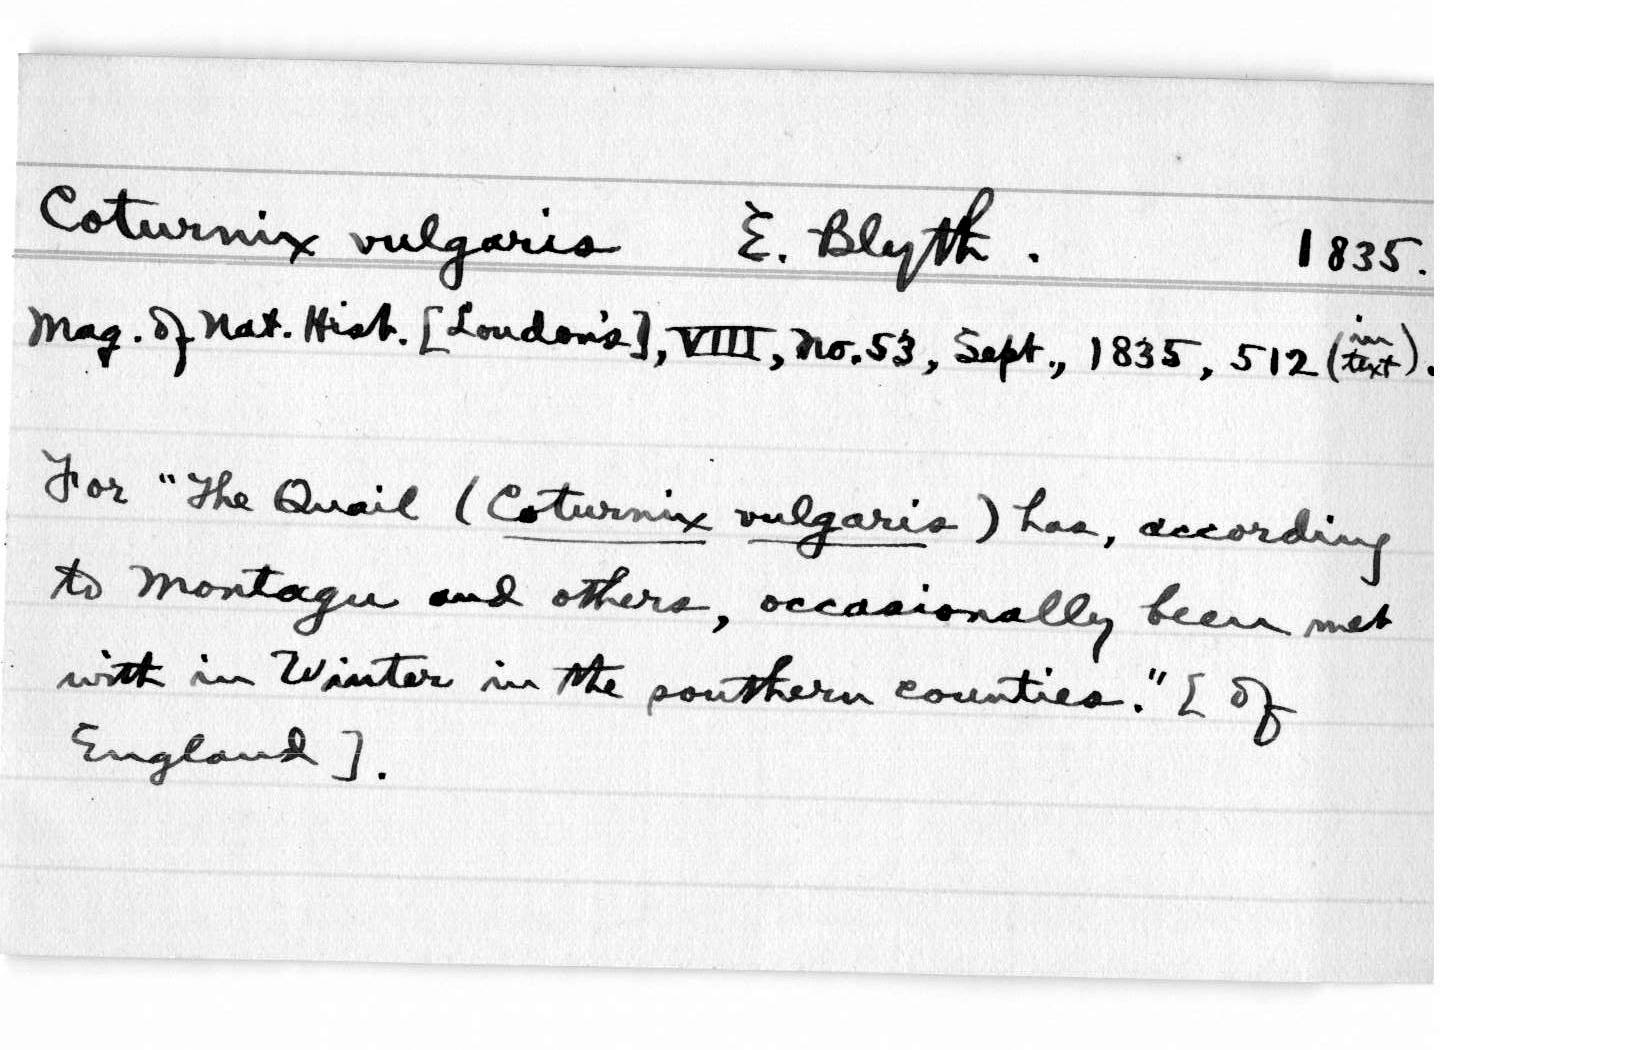 Coturnix vulgaris E. Blyth. 1835.
Mag. of Nat. Hist. [Loudon's], VIII, No. 53, Sept., 1835, 512 (in text).
For "The Quail (Coturnix vulgaris) has, according
to Montagu and others, occasionally been met
with in Winter in the southern counties." [of
England].